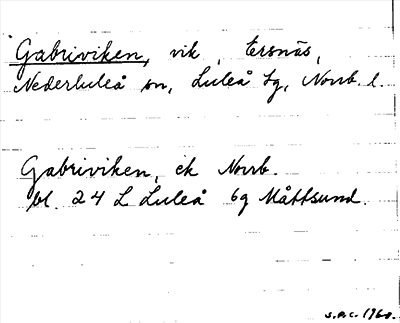 Gabriviken, vik, Ersnäs,
Nederluleå sn, Luleå tg, Norrb. l.
Gabriviken, ek Norrb.
bl. 24 L Luleå 6g Måttsund.
S.A.C. 1960.